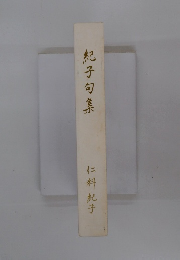 紀子句集
仁科紀子